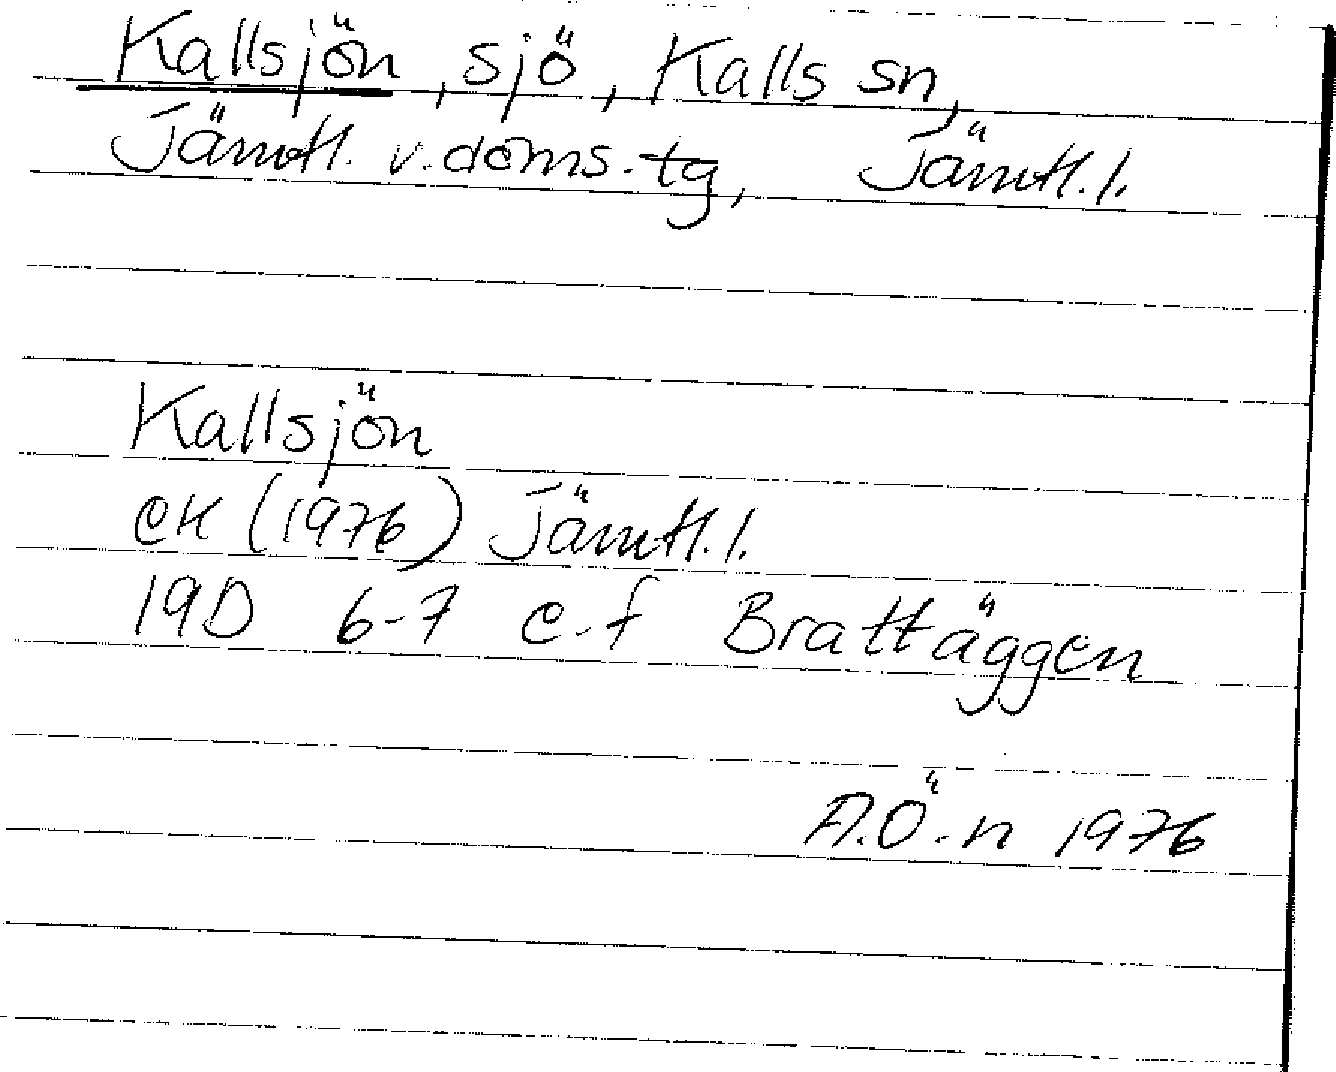 Kallsjön, sjö, Kalls sn,
Jämtl. v. doms. tg, Jämtl. l.
Kallsjön
eK (1976) Jämtl. l.
19D 6-7 e-f Brattäggen
A.Ö-n 1976